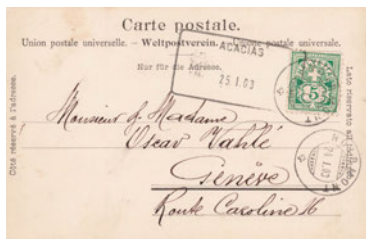 Carte postale.
Union postale universelle. – Weltpostverein. – Unione postale universale.
Nur für die Adresse.
ACACIAS
25.I.03
5
Côté réservé à l'adresse.
Lato riservato all'indirizzo.
Monsieur & Madame
Oscar Vahlé
Genève
Route Caroline 16